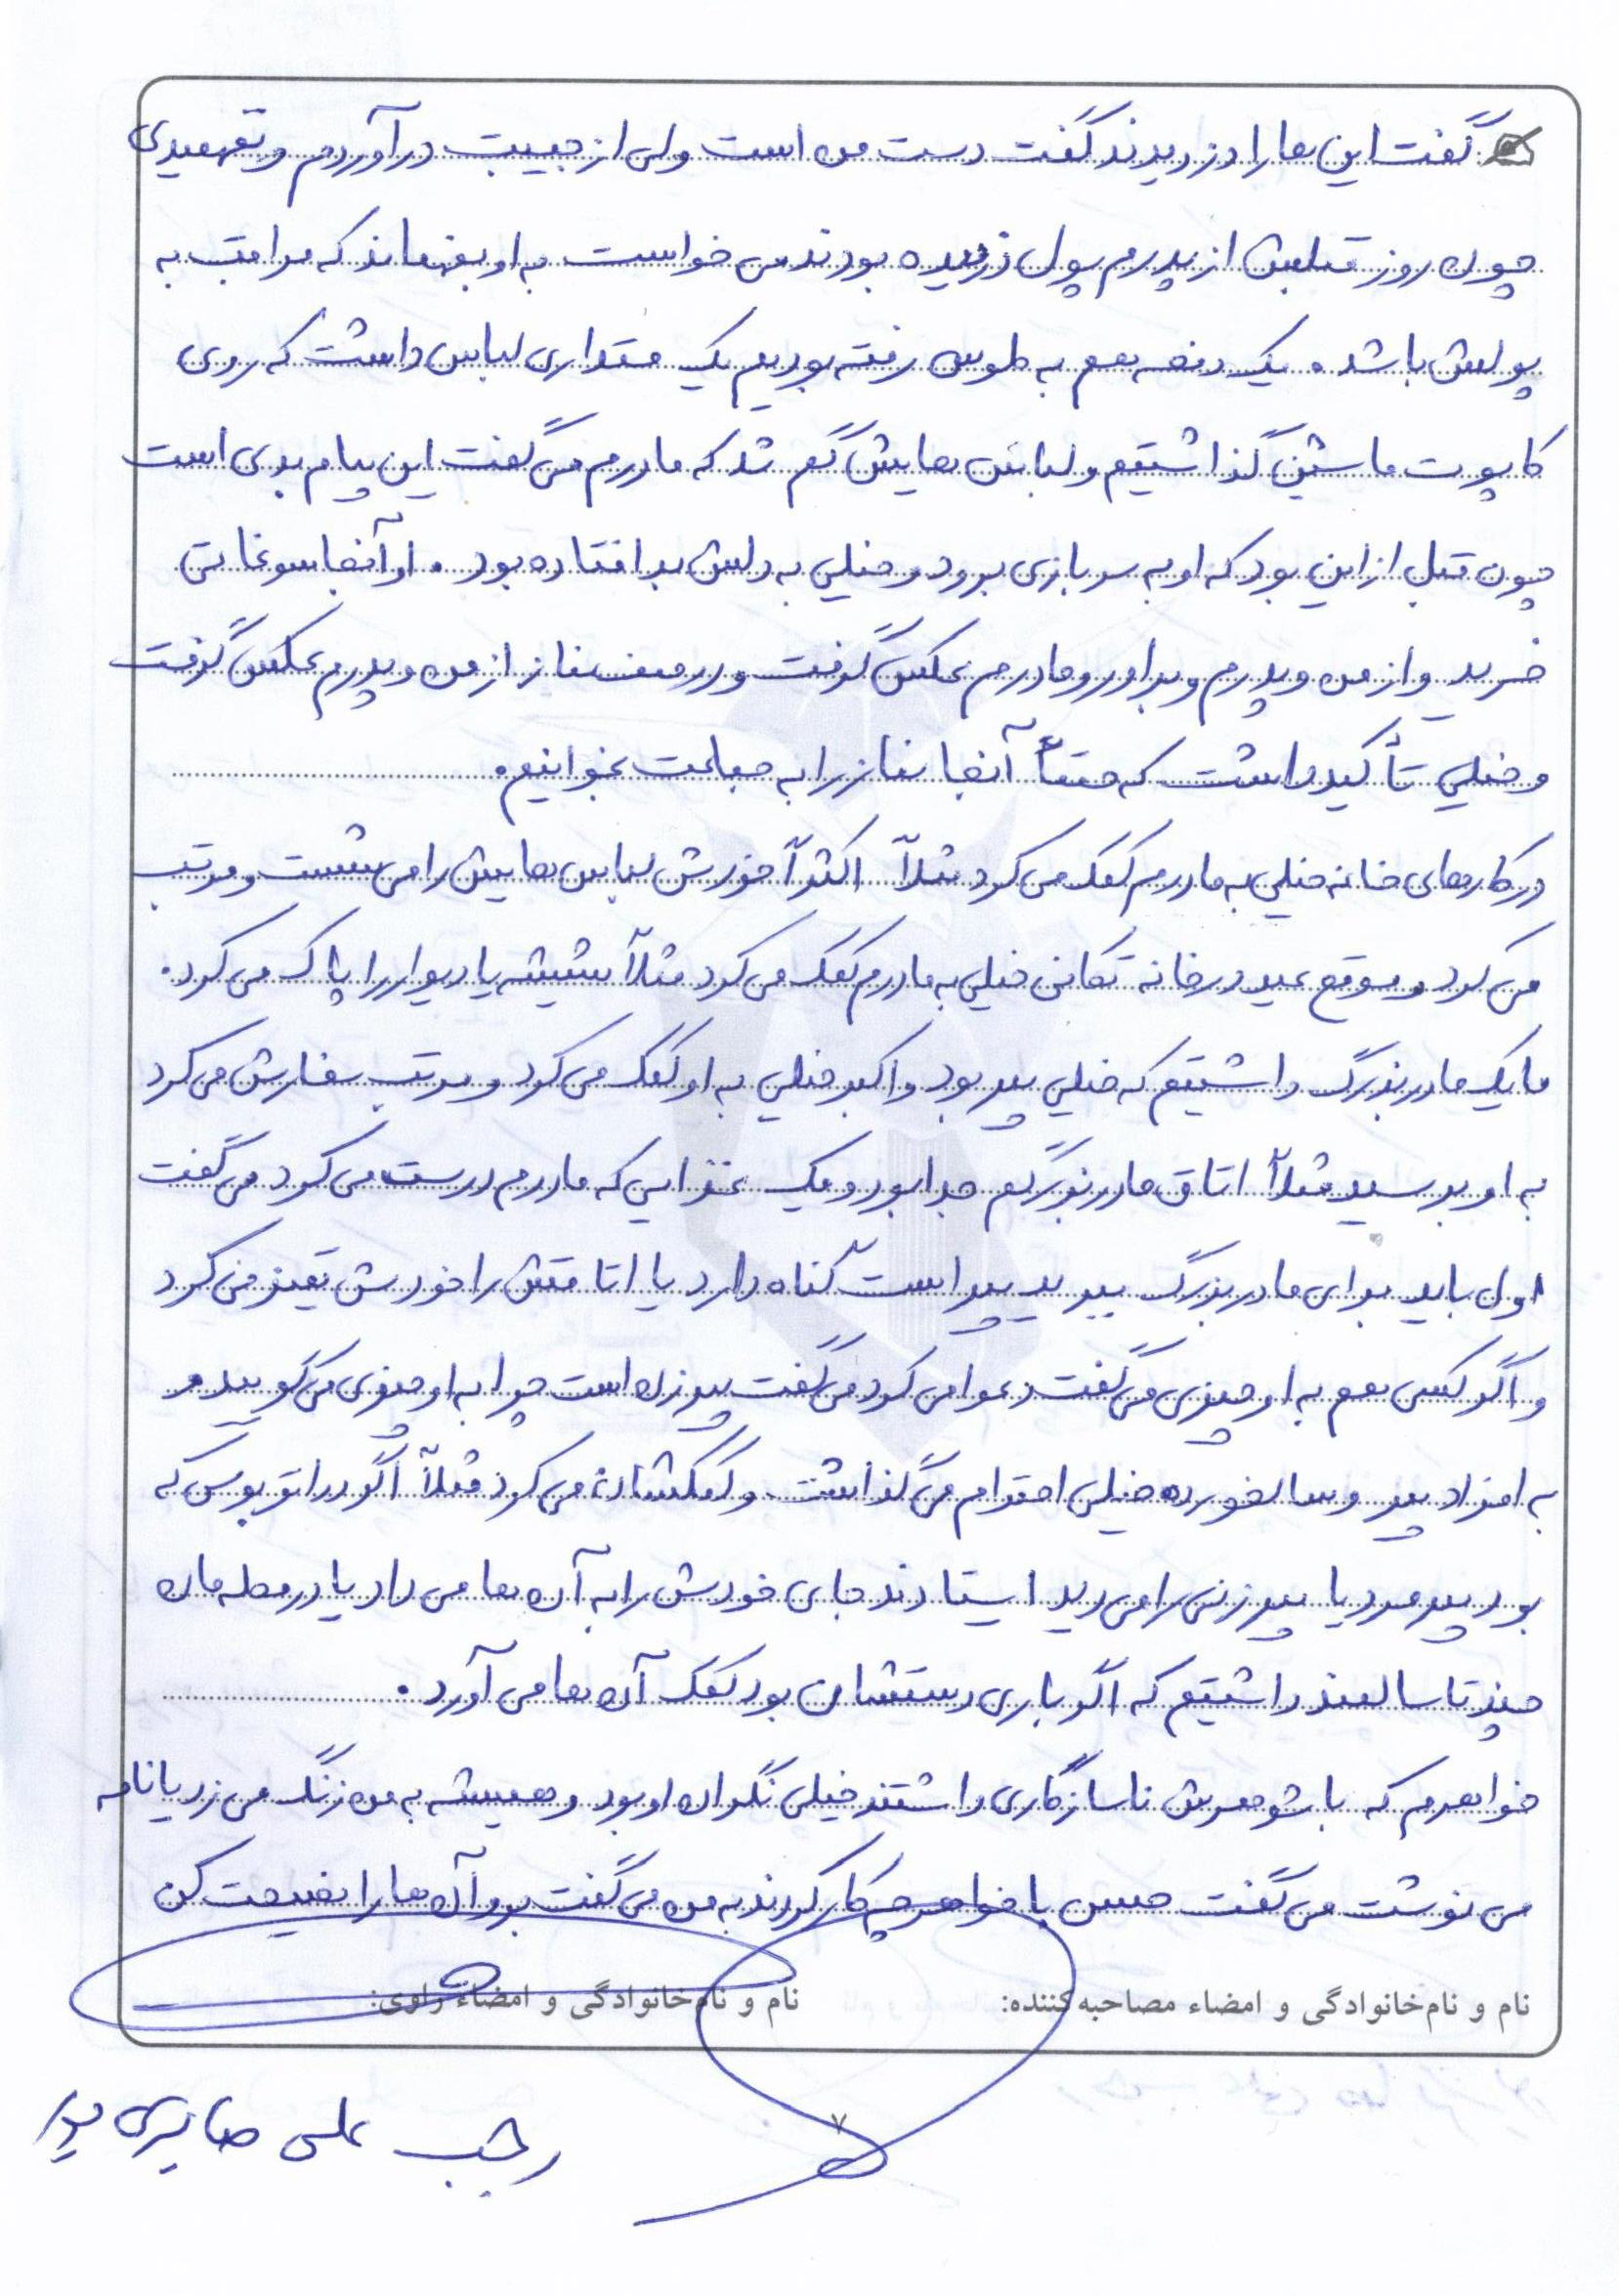 گفت این ها را دزدیدند گفت دست من است ولی از جیبت درآوردم و نفهمیدی
چون روز قبلش از پدرم پول دزدیده بودند می خواست به او بفهماند که مراقب به
پولش باشد. یک دفعه هم به طوس رفته بودیم یک مقداری لباس داشت که روی
کاپوت ماشین گذاشتیم و لباس هایش گم شد که مادرم می گفت این پیام بدی است
چون قبل از این بود که او به سربازی برود و خیلی به دلش بد افتاده بود. او آنجا سوغاتی
خرید و از من و پدرم و برادر و مادرم عکس گرفت و در صف نماز از من و پدرم عکس گرفت
و خیلی تأکید داشت که حتماً آنجا نماز را به جماعت بخوانیم.
در کارهای خانه خیلی به مادرم کمک می کرد مثلاً اکثراً خودش لباس هایش را می شست و مرتب
می کرد و موقع عید در خانه تکانی خیلی به مادرم کمک می کرد مثلاً شیشه یا دیوار را پاک می کرد.
ما یک مادربزرگ داشتیم که خیلی پیر بود و اکبر خیلی به او کمک می کرد و مرتب سفارش می کرد
به او برسید مثلاً اتاق مادربزرگم جدا بود و یک غذایی که مادرم درست می کرد می گفت
اول باید برای مادربزرگ ببرید پیر است گناه دارد یا اتاقش را خودش تمیز می کرد
و اگر کسی هم به او چیزی می گفت دعوا می کرد می گفت پیرزن است چرا به او چیزی می گویید و
به افراد پیر و سالخورده خیلی احترام می گذاشت و کمکشان می کرد مثلاً اگر در اتوبوس که
بود پیرمرد یا پیرزنی را می دید ایستادند جای خودش را به آن ها می داد یا در محله مان
چند تا سالمند داشتیم که اگر باری دستشان بود کمک آن ها می آورد.
خواهرم که با شوهرش ناسازگاری داشتند خیلی نگران او بود و همیشه به من زنگ می زد یا نامه
می نوشت می گفت حسن با خواهر چه کار کردند به من می گفت برو آن ها را نصیحت کن
نام و نام‌خانوادگی و امضاء مصاحبه‌کننده: نام و نام‌خانوادگی و امضاء راوی:
رجب علی صابری پور
۷